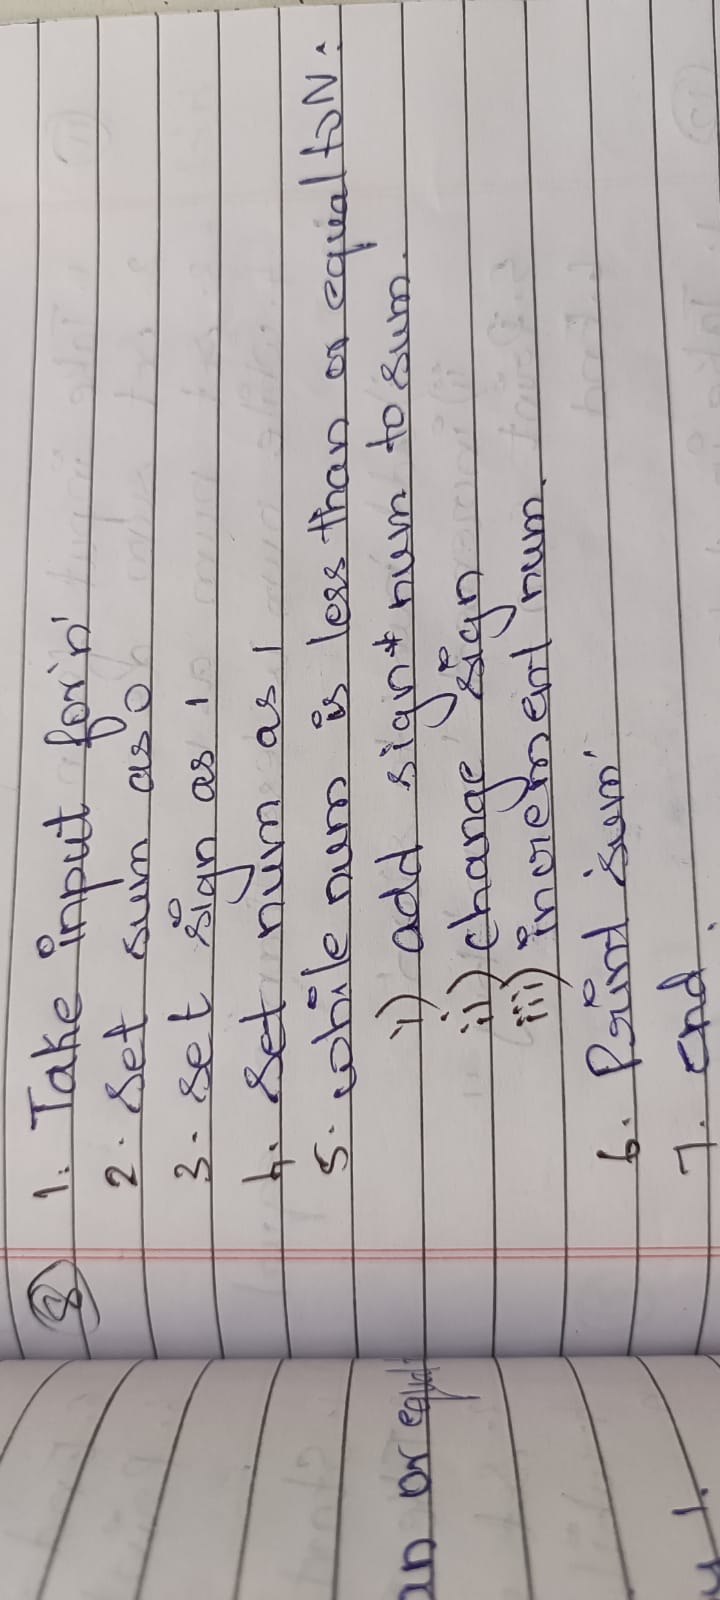 8
1. Take input for 'n'
2. Set sum as 0
3. Set sign as 1
4. Set num as 1
5. while num is less than or equal to N.
i) add sign * num to sum.
ii) change sign
iii) increment num.
6. Print 'sum'
7. end.
an or equal
1.